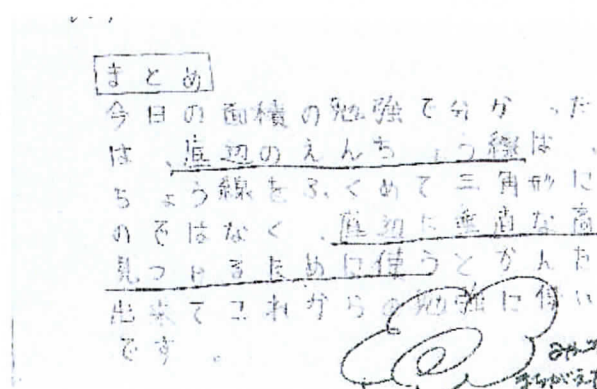 まとめ
今日の面積の勉強で分かった
は、底辺のえんちょう線は、
ちょう線をふくめて三角形に
のではなく、底辺に垂直な高
見つけるために使うとかんた
出来てこれからの勉強に使い
です。